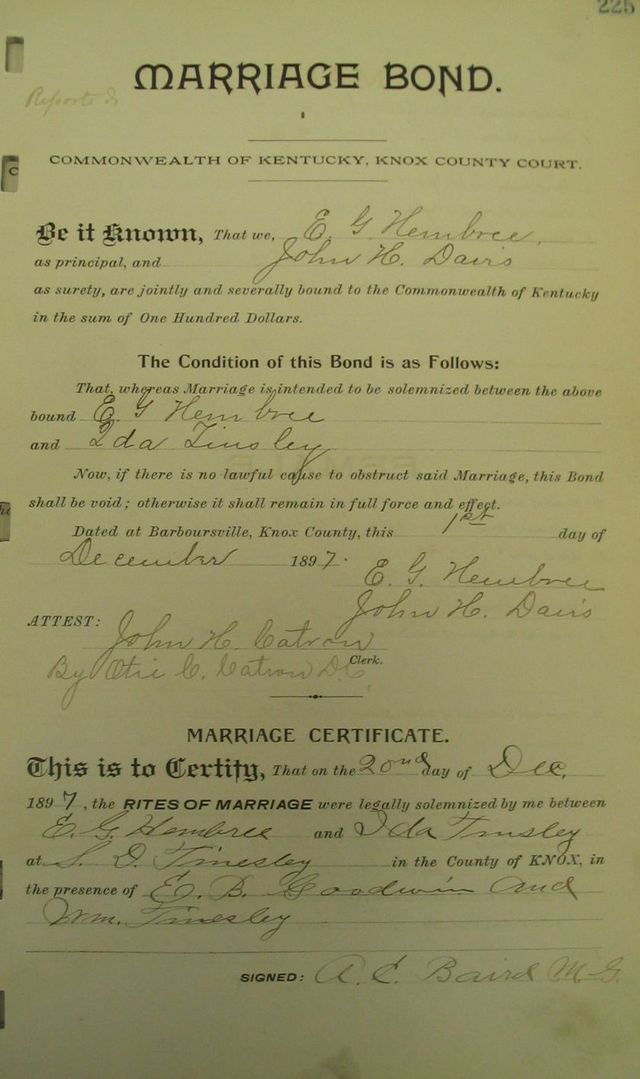 225
MARRIAGE BOND.
COMMONWEALTH OF KENTUCKY, KNOX COUNTY COURT.
Be it Known, That we, E. G Hembree,
as principal, and John H. Davis
as surety, are jointly and severally bound to the Commonwealth of Kentucky
in the sum of One Hundred Dollars.
The Condition of this Bond is as Follows:
That, whereas Marriage is intended to be solemnized between the above
bound E. G Hembree
and Ida Tinsley
Now, if there is no lawful cause to obstruct said Marriage, this Bond
shall be void; otherwise it shall remain in full force and effect.
Dated at Barboursville, Knox County, this 1st day of
December 1897.
E. G. Hembree
John H. Davis
ATTEST:
John H. Catron
By Otis C. Catron D.C. Clerk.
MARRIAGE CERTIFICATE.
This is to Certify, That on the 20nd day of Dec,
1897, the RITES OF MARRIAGE were legally solemnized by me between
E. G. Hembree and Ida Tinsley
at S. D. Tinesley in the County of KNOX, in
the presence of E. B. Goodwin and
Wm. Tinesley
SIGNED: A. E. Baird M-G.